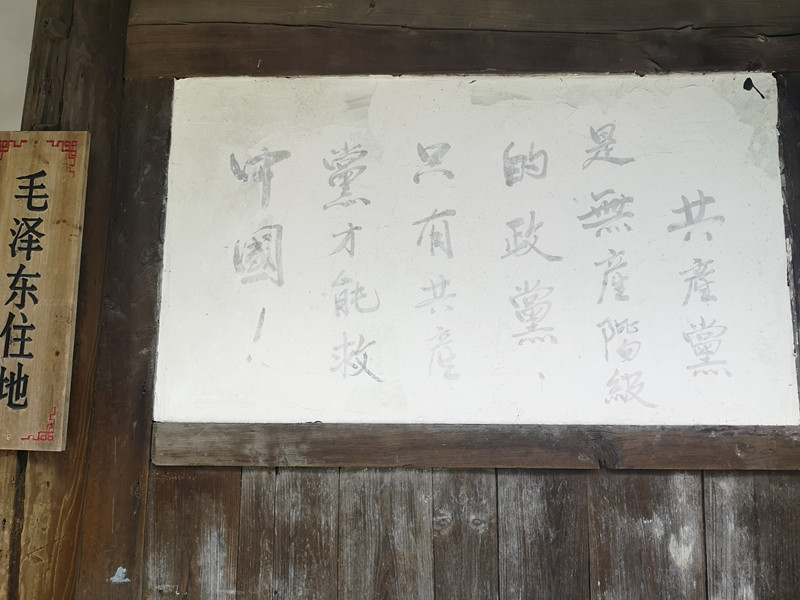 共産黨
是無産階級
的政黨、
只有共産
黨才能救
中國！
毛泽东住地